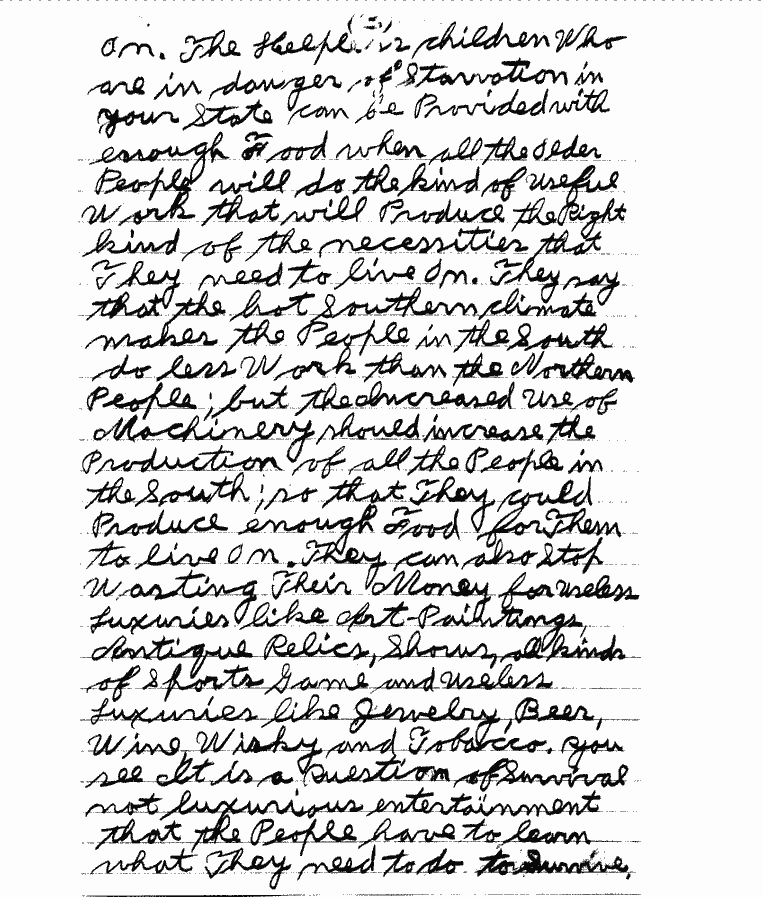 (5)
On. The Helpless children Who
are in danger of Starvation in
your State can be Provided with
enough Food when all the older
People will do the kind of useful
Work that will Produce the Right
kind of the necessities that
They need to live On. They say
that the hot Southern climate
makes the People in the South
do less Work than the Northern
People; but the Increased Use of
Machinery should increase the
Production of all the People in
the South; so that They could
Produce enough Food for Them
to live On. They can also Stop
Wasting Their Money for useless
Luxuries like Art-Paintings,
Antique Relics, Shows, all kinds
of Sports Game and useless
Luxuries like Jewelry, Beer,
Wine, Wisky and Tobacco. You
see It is a Question of Survival
not luxurious entertainment
that the People have to learn
what They need to do to Survive,